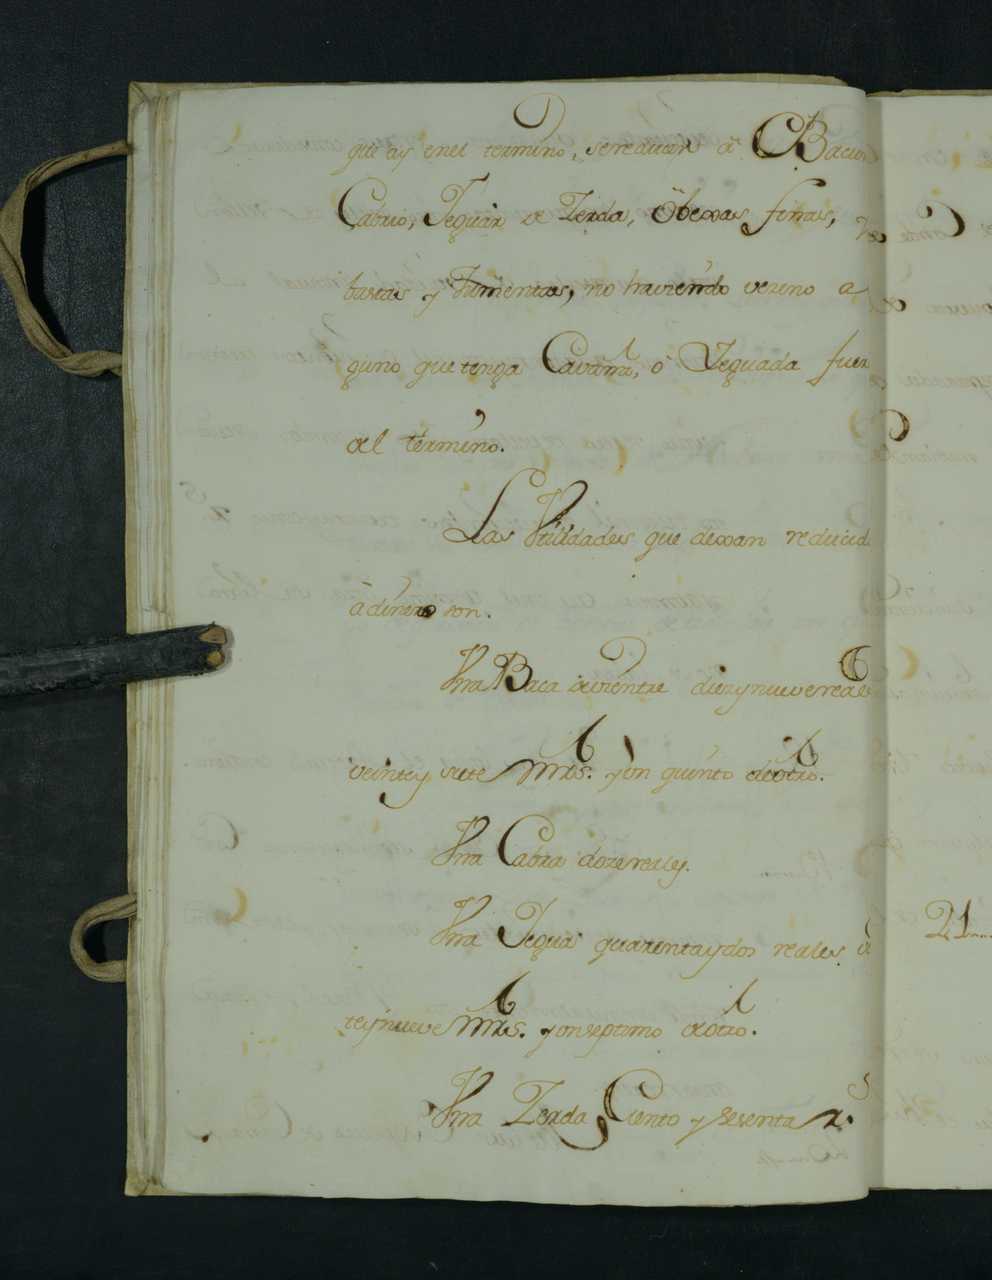 que ay enel termino, sereducen a Bacuno
Cabrio, Yeguar de Zerda, Obexas finas,
bastas y Jumentos, no haviendo vezino a
guno que tenga Cavaña, ò Yeguada fuer
del termino.
Las Vtilidades que dexan reducid
à dinero son.
Vna Baca devientre diezynueve reale
veintey siete Mrs. y un quinto deotro.
Vna Cabra doze reales.
Vna Yegua quarentaydos reales
teynueve Mrs. y unseptimo deotro.
Vna Zerda Ciento y Sesenta rs.
21